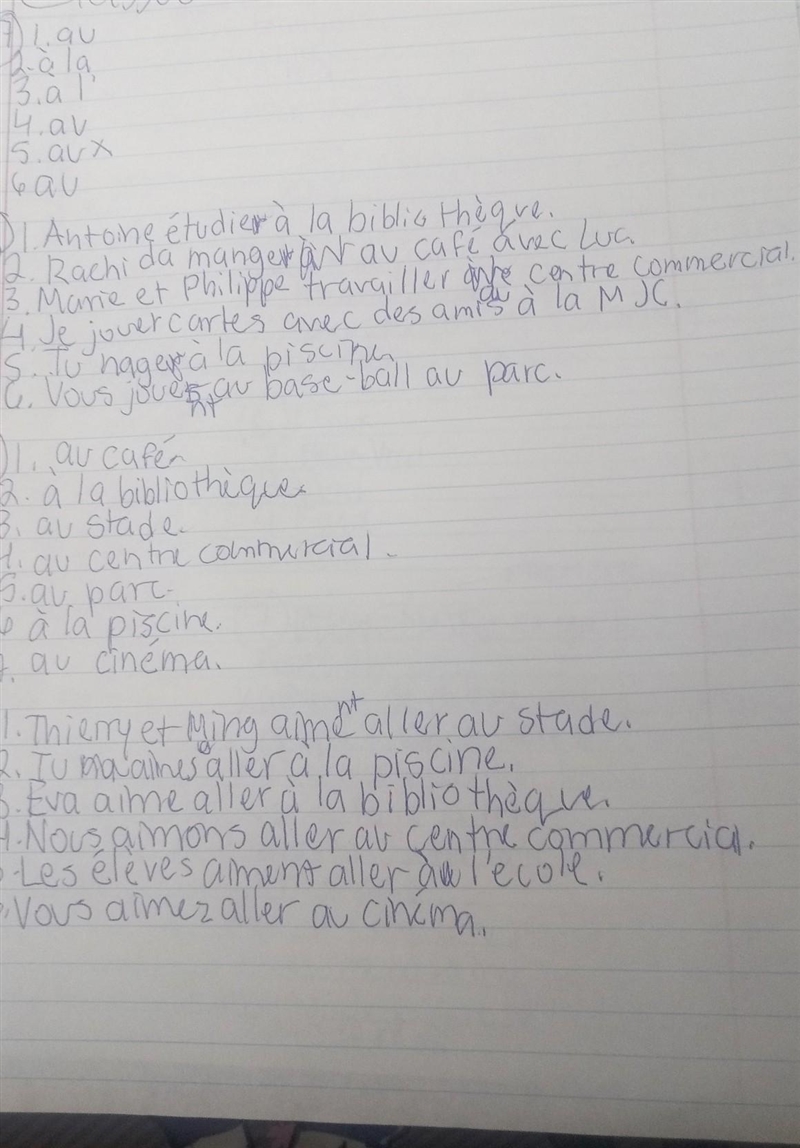 1. au
2. à la
3. a l'
4. au
5. aux
6 au
1. Antoine étudier à la bibliothèque.
2. Rachida manger au café avec Luc.
3. Marie et Philippe travailler centre commercial.
4. Je jouer cartes avec des amis à la MJC.
5. Tu nager à la piscine
6. Vous jouent au base-ball au parc.
1. au café
2. à la bibliothèque
3. au stade.
4. au centre commercial.
5. au parc.
6 à la piscine.
7. au cinéma.
1. Thierry et Ming aiment aller au stade.
2. Tu aimes aller à la piscine.
3. Eva aime aller à la bibliothèque.
4. Nous aimons aller au centre commercial.
5. Les élèves aiment aller à l'ecole.
6. Vous aimez aller au cinéma.